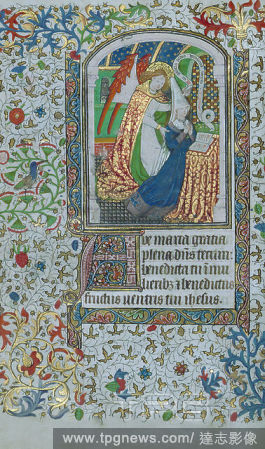 Ave maria gratia
plena. dns tecum:
benedicta tu i mu
lierib3 ⁊ benedictus
fructus uentris tui ihesus.
www.tpgnews.com/ 達志影像